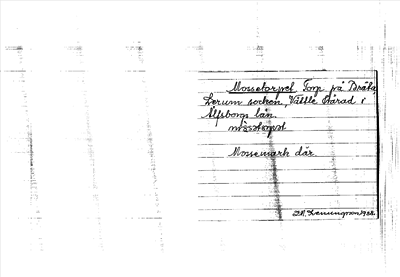 Mossetorpet Torp på Dräta,
Lerum socken, Vättle härad i
Älfsborgs län.
mòsstorpet
Mossemark där.
1922.